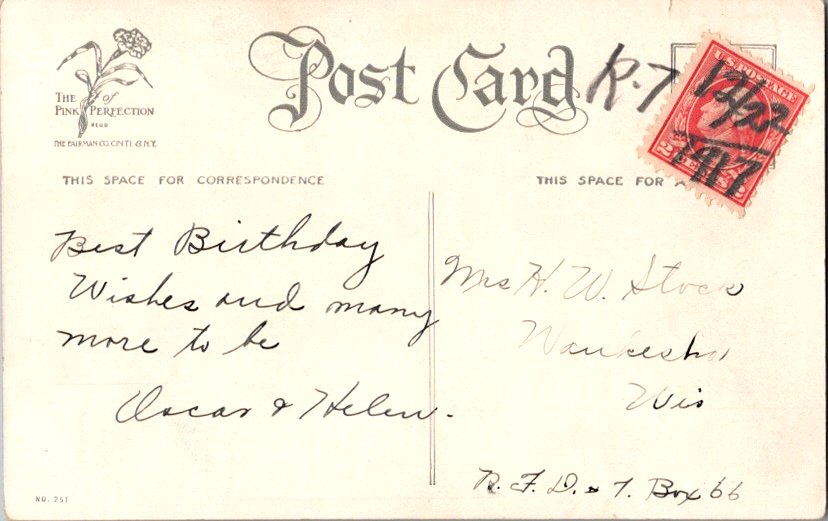 THE of
PINK PERFECTION
REGD
THE FAIRMAN CO. CIN'TI. & N.Y.
Post Card
R-7
U.S. POSTAGE
12/22
1917
2 CENTS 2
THIS SPACE FOR CORRESPONDENCE
THIS SPACE FOR A
Best Birthday
Wishes and many
more to be
Oscar & Helen.
Mrs H. W. Stock
Waukesha
Wis
R. F. D. 7. Box 66
NO. 251